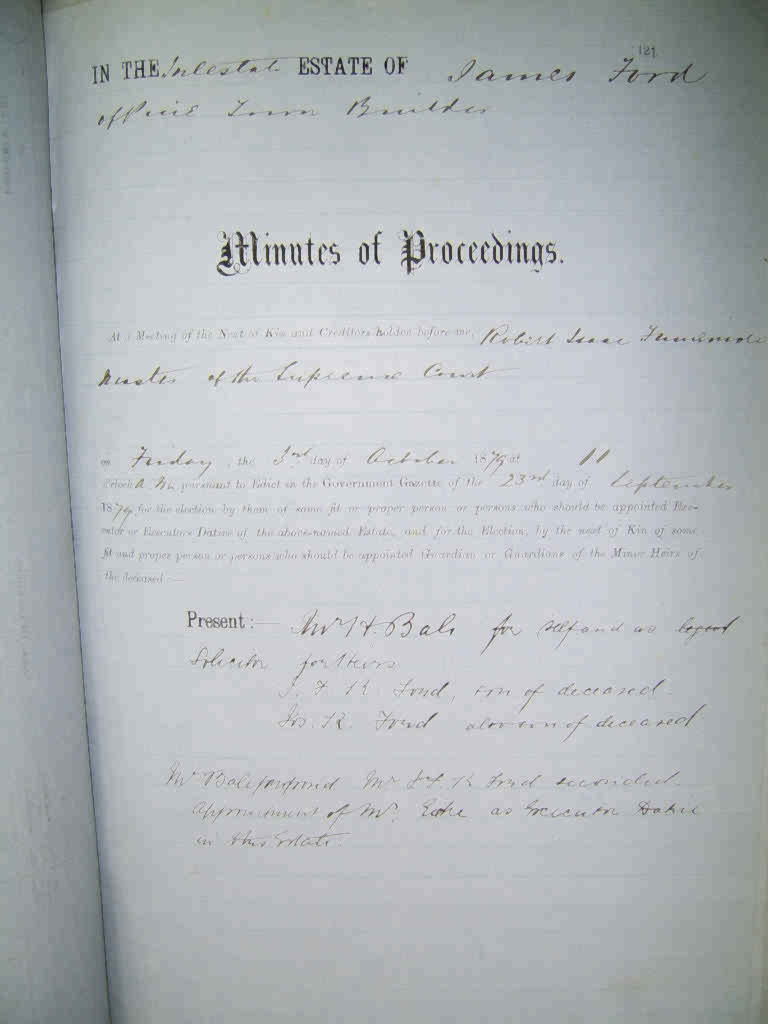 121
IN THE Intestate ESTATE OF James Ford
of Pine Town Builder
Minutes of Proceedings.
At a Meeting of the Next of Kin and Creditors holden before me, Robert Isaac
Master of the Supreme Court
on Friday, the 3rd day of October 1879 at 11
o'clock A.M. pursuant to Edict in the Government Gazette of the 23rd day of September
1879 for the election by them of some fit or proper person or persons who should be appointed Exe-
cutor or Executors Dative of the above-named Estate, and for the Election, by the next of Kin of some
fit and proper person or persons who should be appointed Guardian or Guardians of the Minor Heirs of
the deceased:—
Present:— Mr H. Bale for self and as
Solicitor for Heirs
J. F. K. Ford, son of deceased
Jos. K. Ford also son of deceased
Mr Bale proposed Mr J. F. K Ford seconded
appointment of Mr. as Executor Dative
in this Estate.